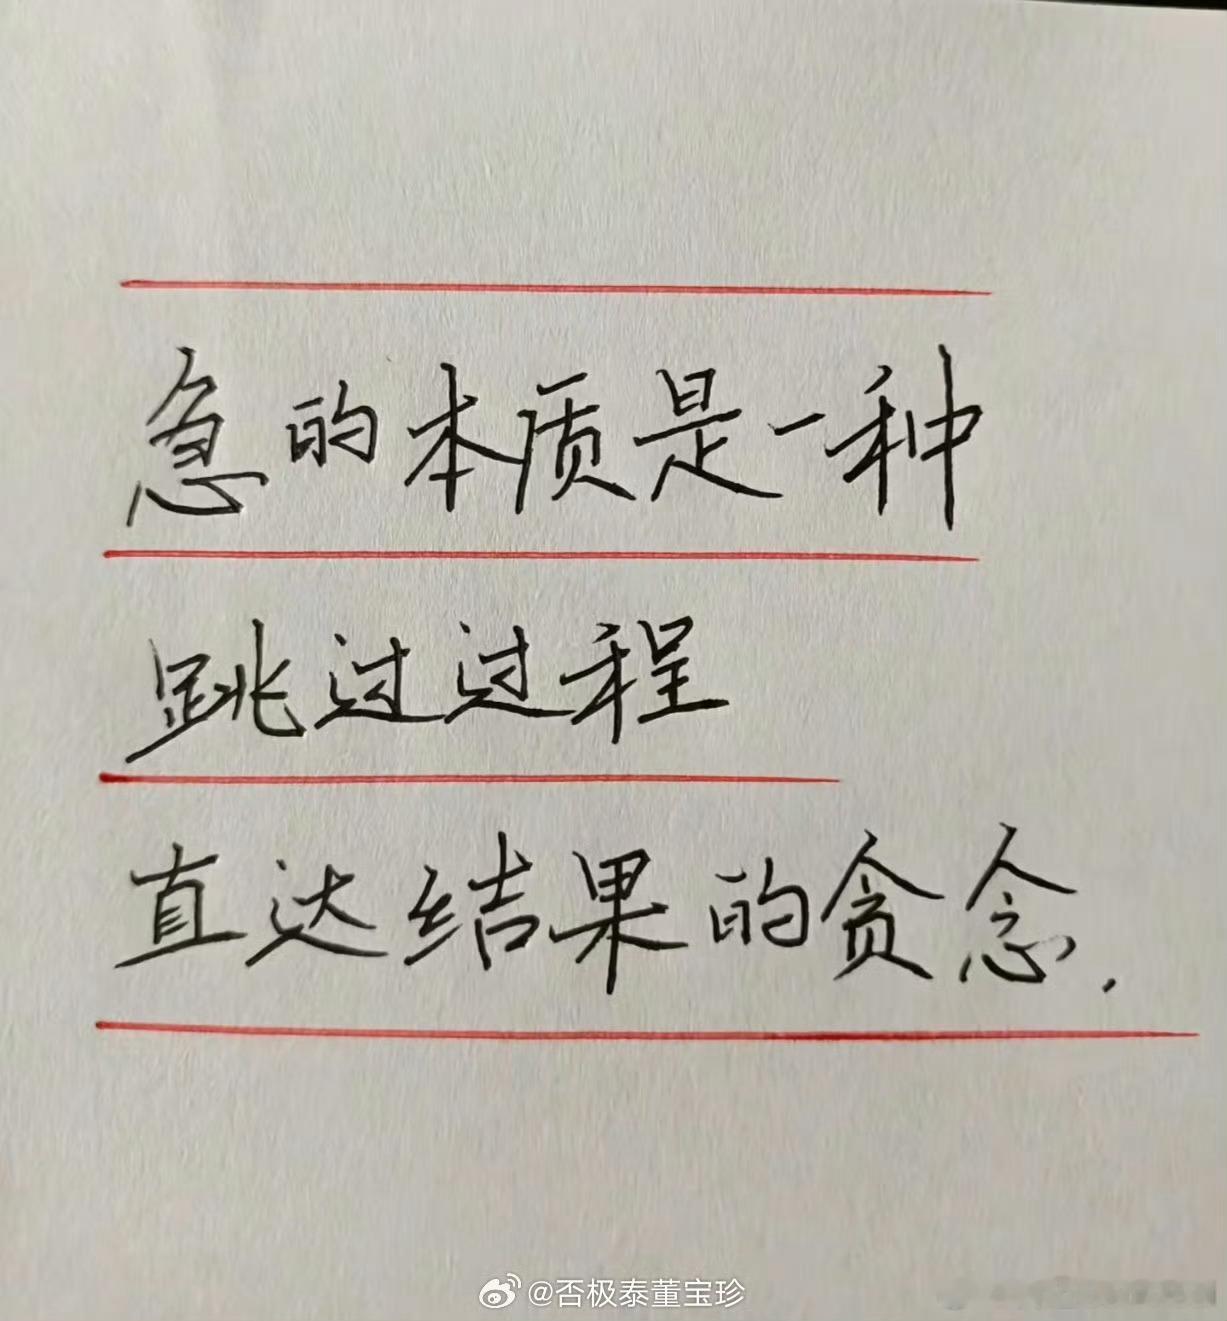 急的本质是一种
跳过过程
直达结果的贪念.
@否极泰董宝珍